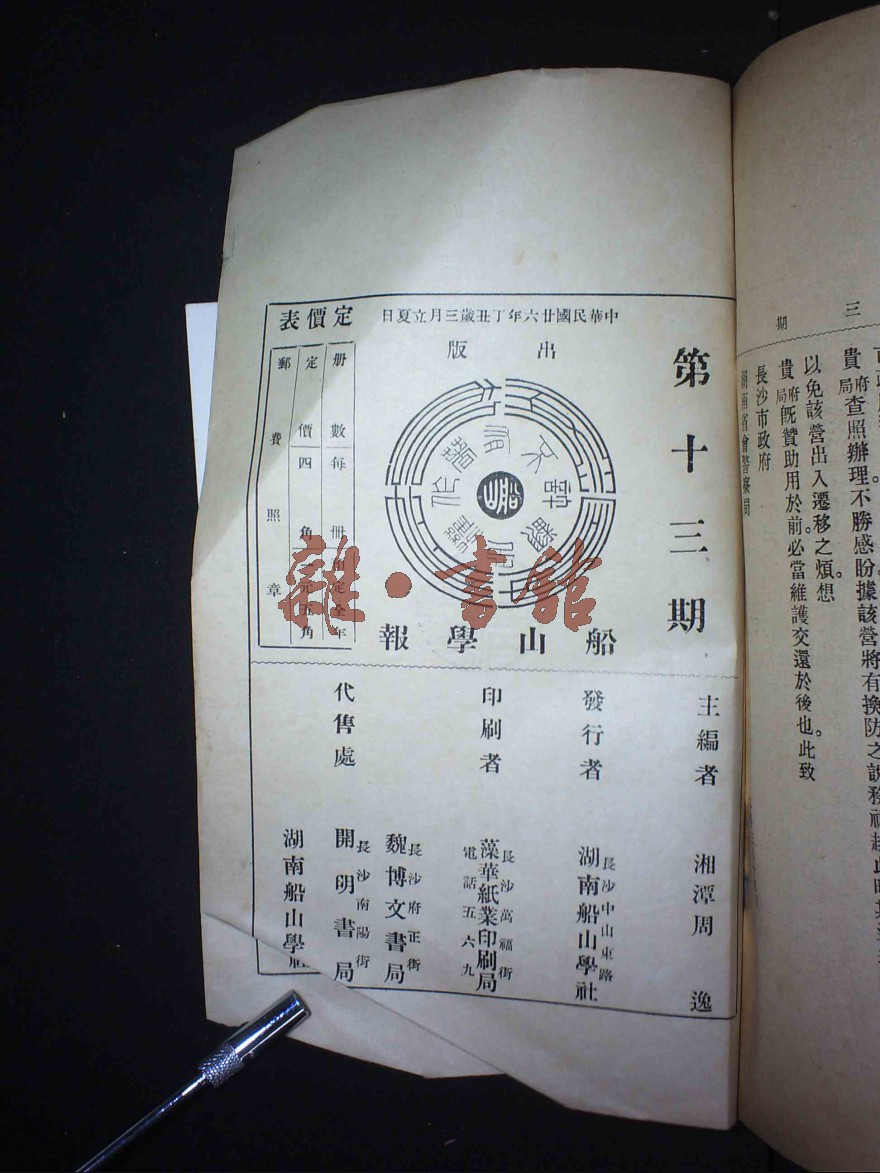 三
期
貴府局查照辦理不勝感盼據該營將有換防之說
以免該營出入遷移之煩想
貴府局既贊助用於前。必當維護交還於後也。此致
長沙市政府
湖南省會警察局
第十三期
中華民國廿六年丁丑歲三月立夏日
出版
船山
船山學報
定價表
册數每册
預定全年
定價四角
元五角
郵費照章
主編者 湘潭周逸
發行者 湖南船山學社
長沙中山東路
印刷者
長沙萬福街
藻華紙業印刷局
電話五六九
代售處
長沙府正街
魏博文書局
長沙南陽街
開明書局
湖南船山學社
雜·書館